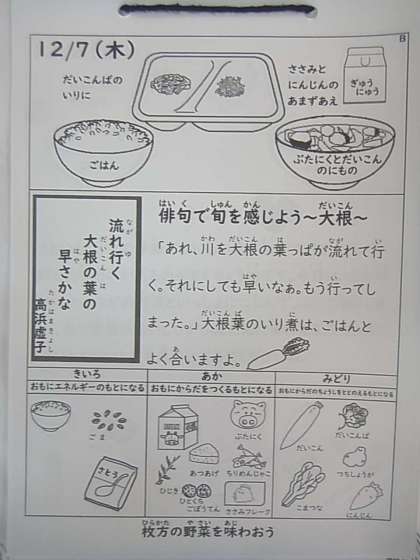 B
12/7(木)
だいこんばの
いりに
ささみと
にんじんの
あまずあえ
ぎゅう
にゅう
ごはん
ぶたにくとだいこん
のにもの
流れ行く
大根の葉の
早さかな
高浜虚子
なが ゆ
だいこん は
はや
たかはまきょし
はいく しゅん かん だいこん
俳句で旬を感じよう～大根～
かわ だいこん は なが い
「あれ、川を大根の葉っぱが流れて行
はや い
く。それにしても早いなぁ。もう行ってし
だいこんば に
まった。」大根葉のいり煮は、ごはんと
あ
よく合いますよ。
きいろ
おもにエネルギーのもとになる
ごま
さとう
あか
おもにからだをつくるもとになる
ぶたにく
あつあげ
ちりめんじゃこ
ひじき
ひとくち
ごぼうてん
ささみフレーク
みどり
おもにからだのちょうしをととのえるもとになる
だいこん
だいこんば
つちしょうが
こまつな
にんじん
ひらかた やさい あじ
枚方の野菜を味わおう